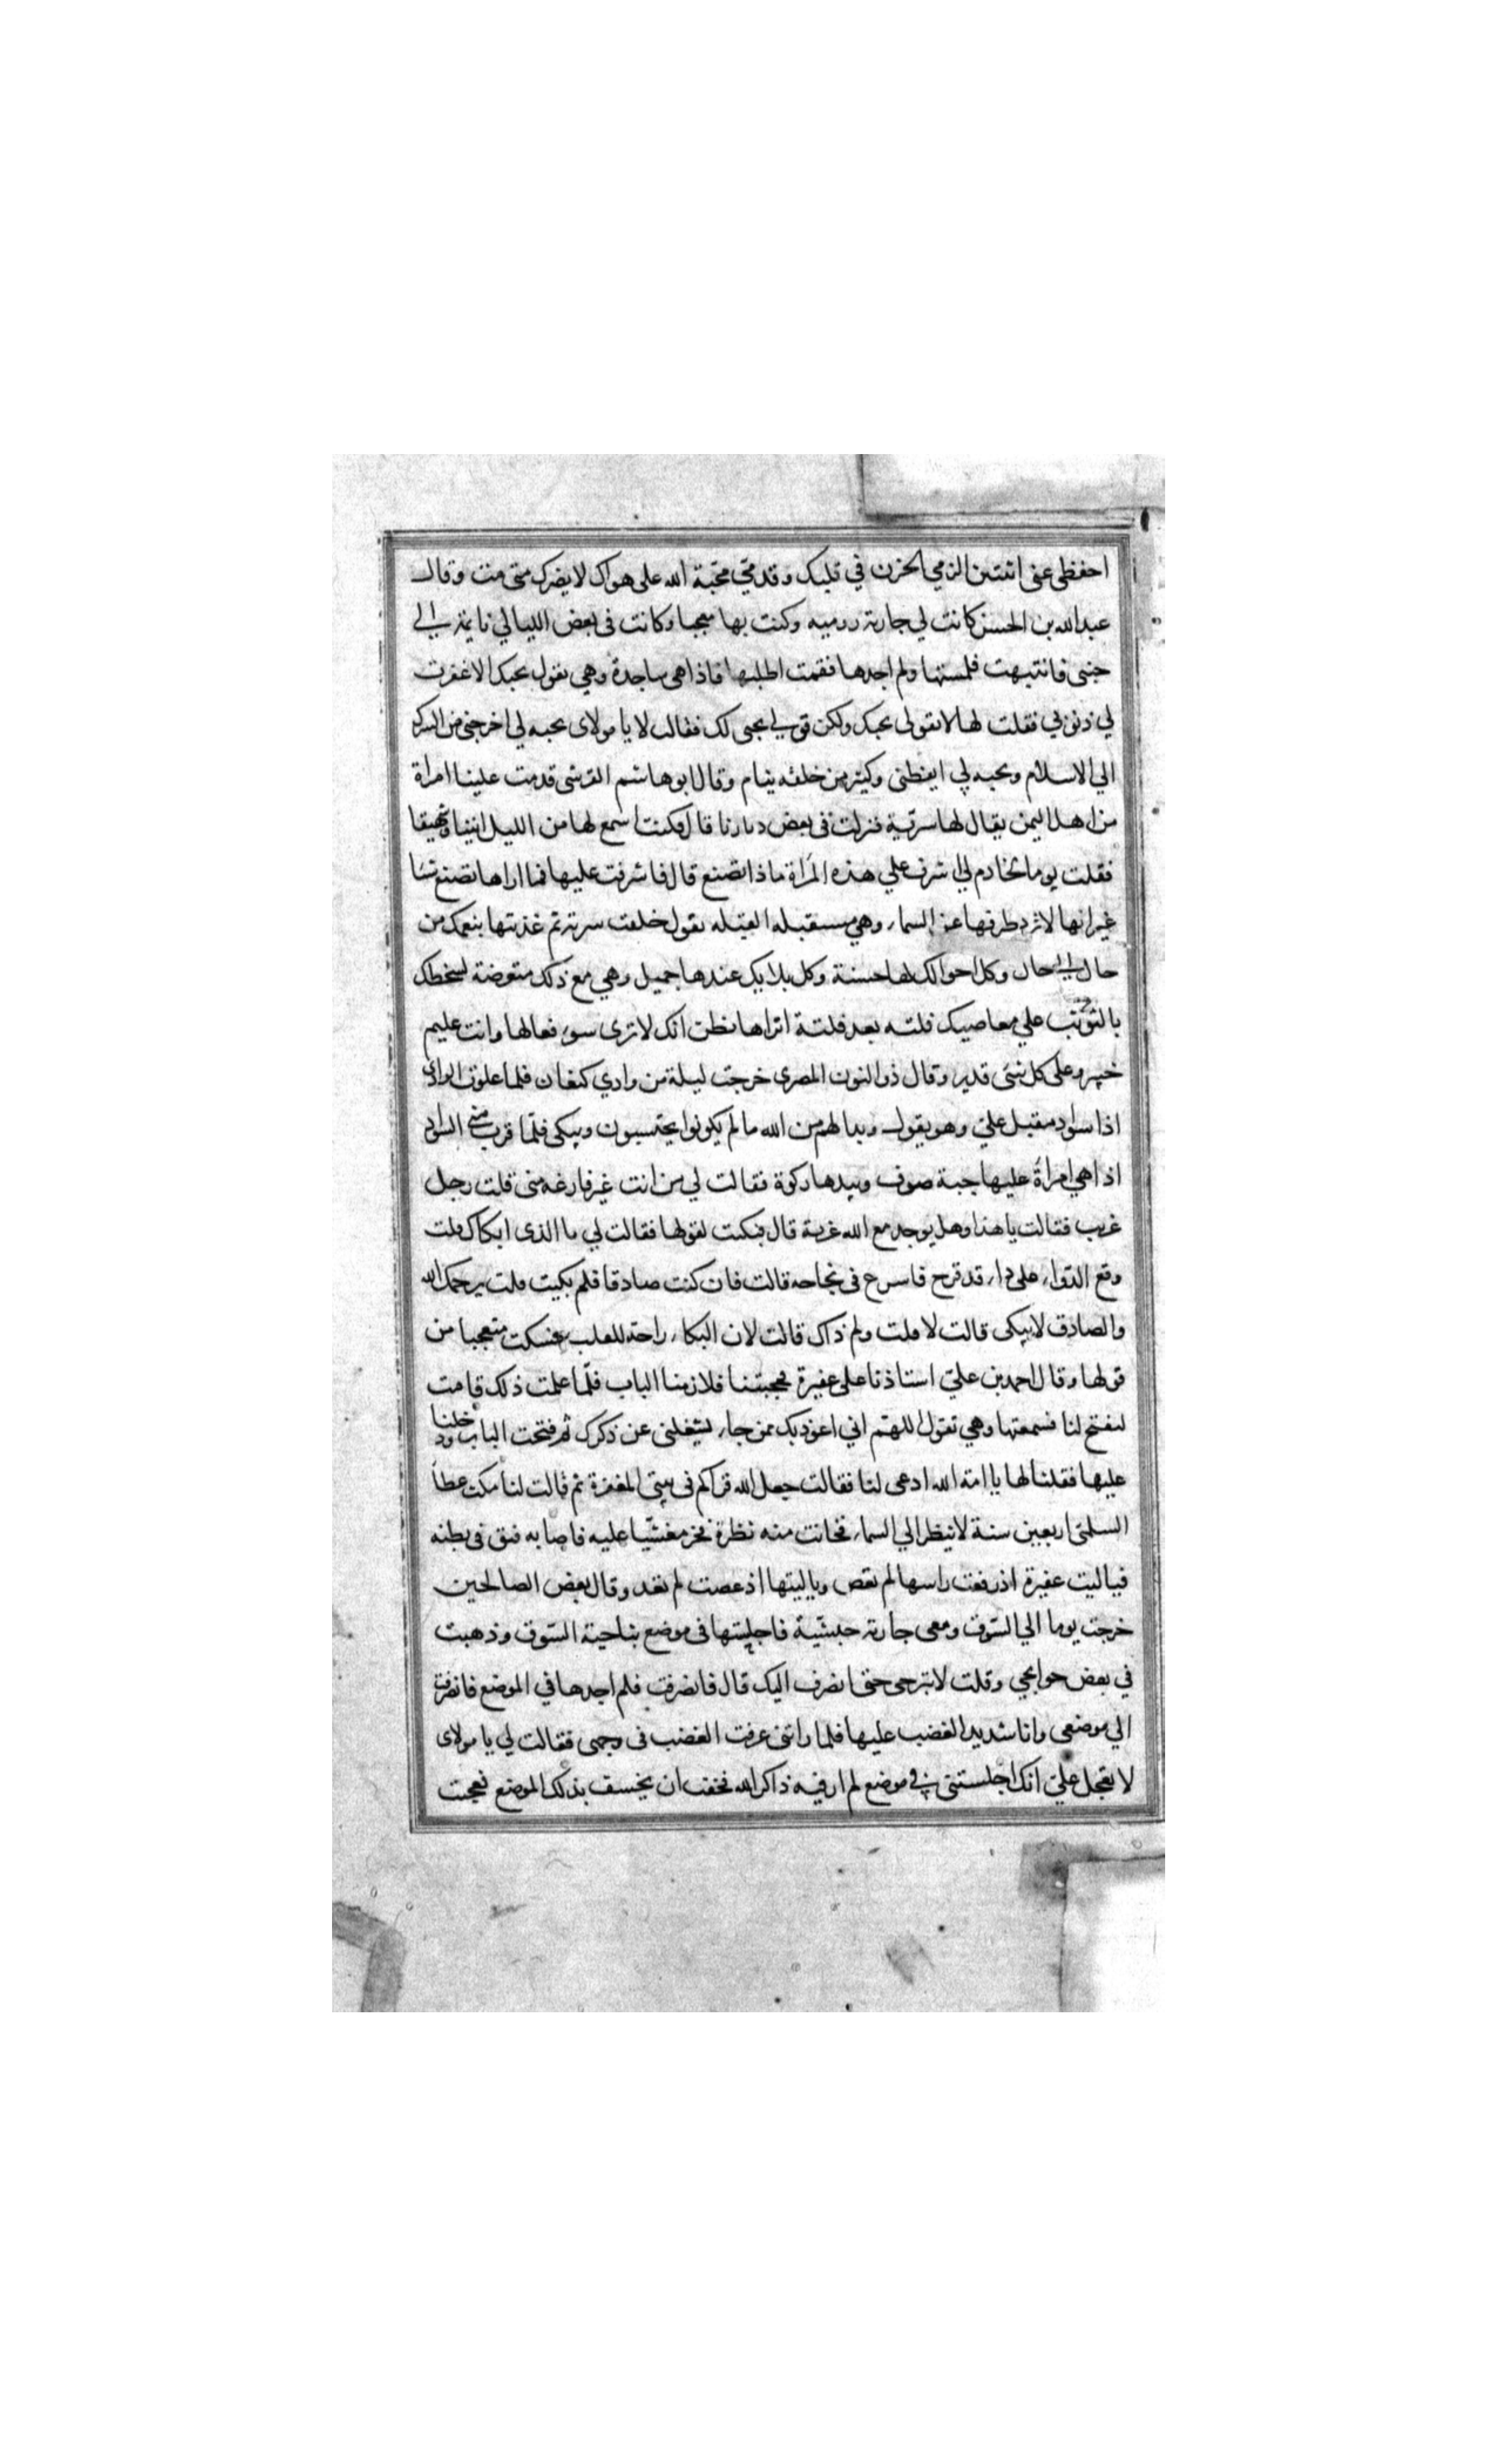 احفظى عنى اثنتين الزمي الحزن في قلبك وقدمي محبة الله على هواك لا يضرك متى مت وقال
عبد الله بن الحسن كانت لي جارية رومية وكنت بها معجبا وكانت فى بعض الليالي نايمة الي
جنبى فانتبهت فلمستها ولم اجدها فقمت اطلبها فاذا هى ساجدة وهي تقول بحبك الا غفرت
لي ذنوبي فقلت لها لا تقولى بحبك ولكن قولي بحبى لك فقالت لا يا مولاى بحبه لي اخرجنى من الشرك
الي الاسلام وبحبه لي ايقظنى وكثير من خلقه ينام وقال ابو هاشم القرشى قدمت علينا امراة
من اهل اليمن يقال لها سرية فنزلت فى بعض ديارنا قال فكنت اسمع لها من الليل انينا وشهيقا
فقلت يوما لخادم لي اشرف علي هذه المرأة ماذا تصنع قال فاشرفت عليها فما اراها تصنع شيا
غير انها لا ترد طرفها عن السماء وهي مستقبله القبله تقول خلقت سرية ثم غذيتها بنعمك من
حال الي حال وكل احوالك لها حسنة وكل بلايك عندها جميل وهي مع ذلك متعرضة لسخطك
بالتوثب علي معاصيك فلته بعد فلتة اتراها تظن انك لا ترى سوء فعالها وانت عليم
خبير وعلى كل شئ قدير وقال ذو النون المصرى خرجت ليلة من وادي كنعان فلما علوت الوادى
اذا سواد مقبل علىّ وهو يقول وبدا لهم من الله ما لم يكونوا يحتسبون ويبكى فلمّا قرب منى السواد
اذا هي امرأة عليها جبة صوف وبيدها ركوة فقالت لي من انت غير فازعه منى قلت رجل
غريب فقالت يا هذا وهل يوجد مع الله غربة قال فبكيت لقولها فقالت لي ما الذى ابكاك قلت
وقع الدواء على داء قد قرح فاسرع فى نجاحه قالت فان كنت صادقا فلم بكيت قلت يرحمك الله
والصادق لا يبكى قالت لا قلت ولم ذاك قالت لان البكاء راحة للقلب فسكت متعجبا من
قولها وقال احمد بن علىّ استاذنا على عفيرة فحجبتنا فلازمنا الباب فلمّا علمت ذلك قامت
لتفتح لنا فسمعتها وهي تقول اللهم اني اعوذ بك ممن جاء يشغلنى عن ذكرك ثم فتحت الباب ودخلنا
عليها فقلنا لها يا امة الله ادعى لنا فقالت جعل الله قراكم فى بيتى المغفرة ثم قالت لنا مكث عطا
السلمى اربعين سنة لا ينظر الي السماء فخانت منه نظرة فخر مغشيّا عليه فاصابه فتق فى بطنه
فياليت عفيرة اذ رفعت راسها لم تعص وياليتها اذ عصت لم تعد وقال بعض الصالحين
خرجت يوما الي السّوق ومعى جارية حبشية فاجلستها فى موضع بناحية السّوق وذهبت
في بعض حوايجي وقلت لا تبرحى حتى انصرف اليك قال فانصرفت فلم اجدها في الموضع فانصرفت
الي موضعى وانا شديد الغضب عليها فلما راتنى عرفت الغضب فى وجهى فقالت لي يا مولاى
لا تعجل علىّ انك اجلستنى في موضع لم ار فيه ذاكر الله فخفت ان يخسف بذلك الموضع فعجبت